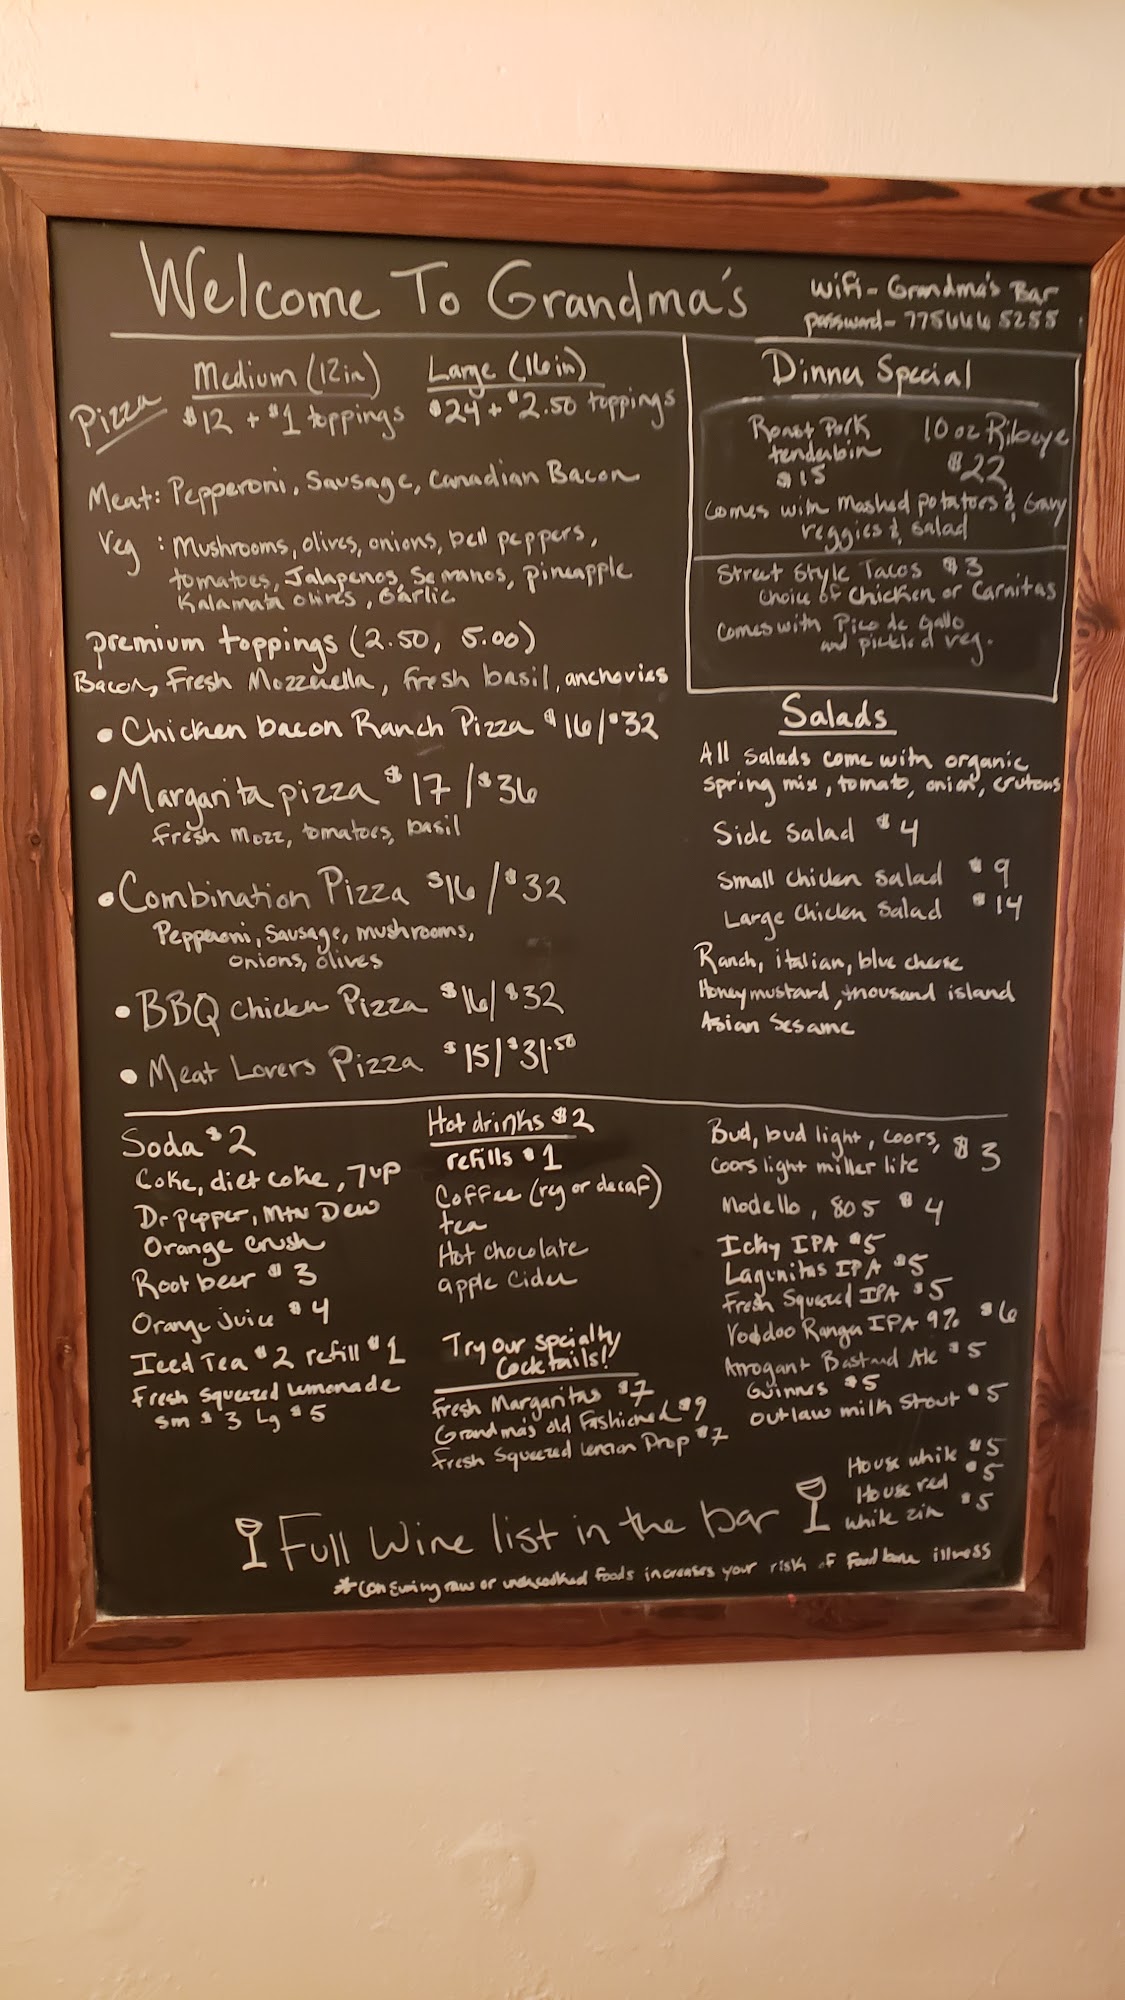 Welcome To Grandma's
wifi - Grandma's Bar
password - 775 666 5255
Pizza
Medium (12in)
$12 + $1 toppings
Large (16in)
$24 + $2.50 toppings
Meat: Pepperoni, Sausage, Canadian Bacon
Veg : Mushrooms, olives, onions, bell peppers,
tomatoes, Jalapenos, Serranos, pineapple
Kalamata olives, Garlic
premium toppings (2.50, 5.00)
Bacon, Fresh Mozzerella, fresh basil, anchovies
• Chicken bacon Ranch Pizza $16/$32
• Margarita pizza $17/$36
fresh mozz, tomatoes, basil
• Combination Pizza $16/$32
Pepperoni, Sausage, mushrooms,
onions, olives
• BBQ chicken Pizza $16/$32
• Meat Lovers Pizza $15/$31.50
Dinner Special
Roast Pork
tenderloin
$15
10 oz Ribeye
$22
Comes with Mashed potatoes & Gravy
veggies & salad
Street Style Tacos $3
Choice of Chicken or Carnitas
Comes with Pico de Gallo
and pickled veg.
Salads
All Salads come with organic
spring mix, tomato, onion, crutons
Side Salad $4
Small chicken salad $9
Large Chicken Salad $14
Ranch, italian, blue cheese
Honey mustard, thousand island
Asian Sesame
Soda $2
Coke, diet coke, 7up
Dr Pepper, Mtn Dew
Orange Crush
Root beer $3
Orange Juice $4
Iced Tea $2 refill $1
Fresh Squeezed Lemonade
Sm $3 Lg $5
Hot drinks $2
refills $1
Coffee (reg or decaf)
tea
Hot chocolate
apple Cider
Try our specialty
Cocktails!
Fresh Margaritas $7
Grandma's old Fashioned $9
Fresh Squeezed Lemon Drop $7
Bud, bud light, coors, $3
coors light miller lite
Modello, 805 $4
Icky IPA $5
Lagunitas IPA $5
Fresh Squeezed IPA $5
Voodoo Ranger IPA 9% $6
Arrogant Bastard Ale $5
Guinnes $5
Outlaw milk Stout $5
House white $5
House red $5
white zin $5
Full Wine list in the bar
*Consuming raw or undercooked foods increases your risk of food borne illness